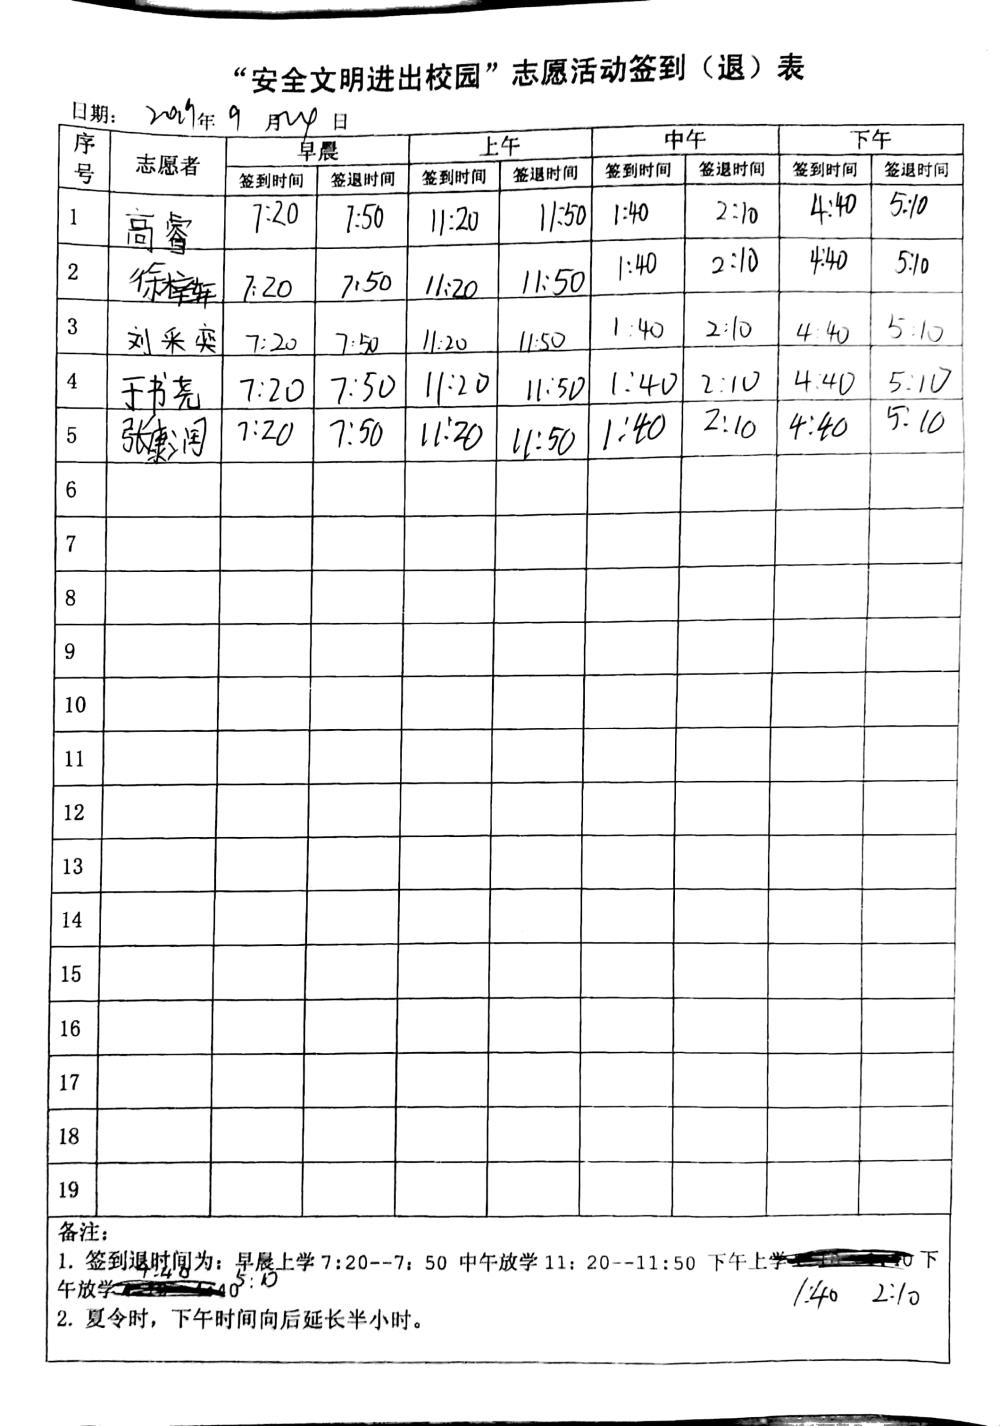 “安全文明进出校园”志愿活动签到（退）表
日期： 年 9 月 24 日
序号 志愿者 早晨 上午 中午 下午
签到时间 签退时间 签到时间 签退时间 签到时间 签退时间 签到时间 签退时间
1 高睿 7:20 7:50 11:20 11:50 1:40 2:10 4:40 5:10
2 徐梓轩 7:20 7:50 11:20 11:50 1:40 2:10 4:40 5:10
3 刘采奕 7:20 7:50 11:20 11:50 1:40 2:10 4:40 5:10
4 于书尧 7:20 7:50 11:20 11:50 1:40 2:10 4:40 5:10
5 张康润 7:20 7:50 11:20 11:50 1:40 2:10 4:40 5:10
6
7
8
9
10
11
12
13
14
15
16
17
18
19
备注：
1. 签到退时间为：早晨上学7:20--7：50 中午放学11：20--11:50 下午上学 1:40 2:10 下
午放学 4:40 5:10
2. 夏令时，下午时间向后延长半小时。